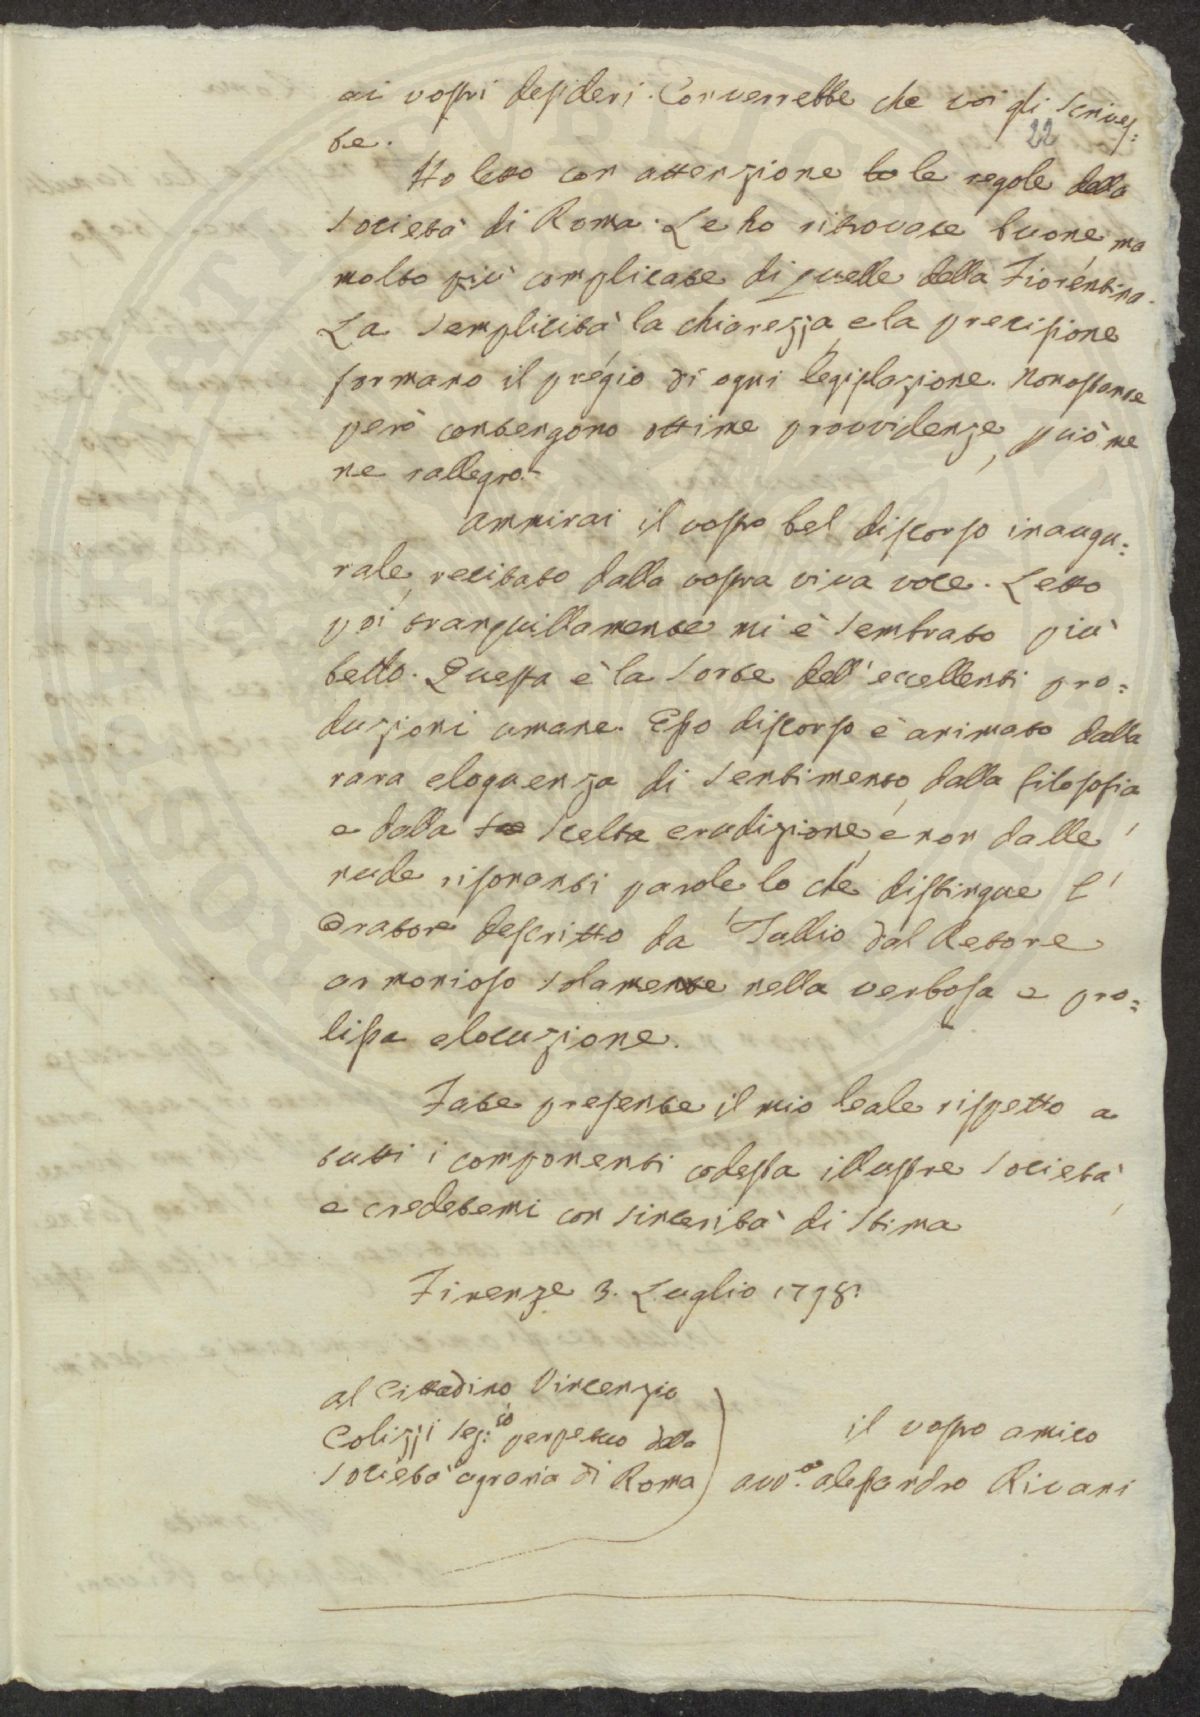 ai vostri desideri. Converrebbe che voi gli scrives=
se.
22
Ho letto con attenzione le regole della
Società di Roma. Le ho ritrovate buone, ma
molto più complicate di quelle della Fiorentina.
La semplicità la chiarezza, e la precisione
formano il prégio di ogni legislazione. Nonostante
però contengono ottime provvidenze, più me
ne rallegro.
Ammirai il vostro bel discorso inaugu=
rale, recitato dalla vostra viva voce. Letto
poi tranquillamente mi è sembrato più
bello. Questa è la sorte dell'eccellenti pro=
duzioni umane. Esso discorso è animato dalla
rara eloquenza di sentimento, dalla filosofia
e dalla scelta erudizione, e non dalle
nude risonanti parole lo che distingue l'
Oratore descritto da Tullio dal Retore
armonioso solamente nella verbosa e pro=
lissa elocuzione.
Fate presente il mio leale rispetto a
tutti i componenti codesta illustre Società
e credetemi con sincerità di stima
Firenze 3. Luglio 1798.
al Cittadino Vincenzio
Colizzi Seg:io perpetuo della
Società agraria di Roma
il vostro amico
avv.o alessandro Rivani